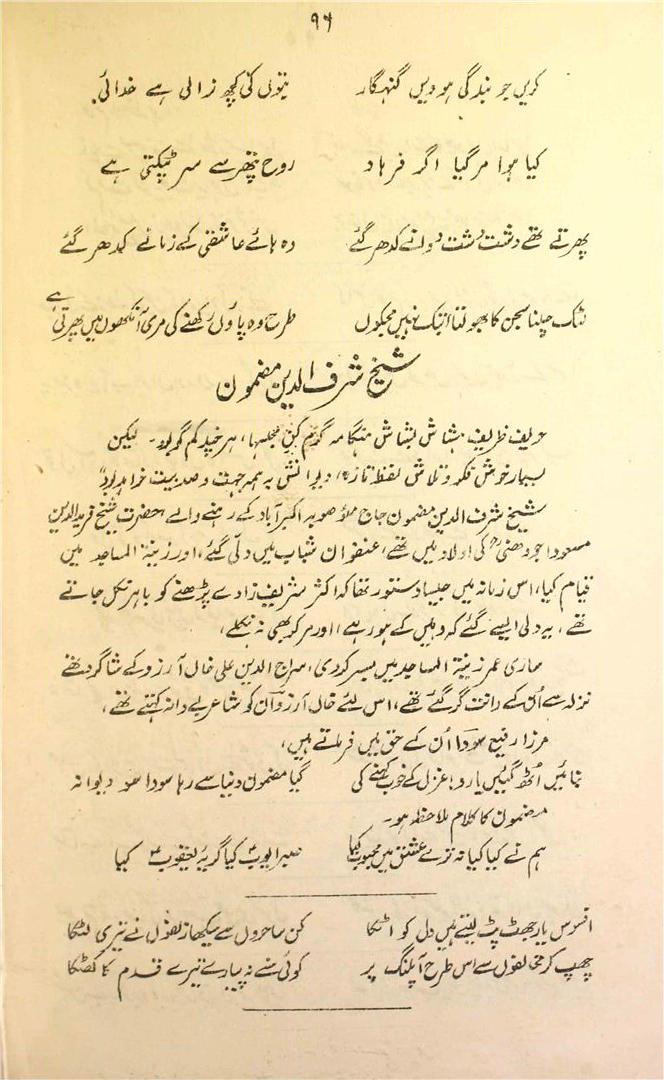 ۹۶
کریں جو بندگی ہو ویں گنہگار بتوں کی کچھ نرالی ہے خدائی
کیا ہوا مر گیا اگر فرہاد روح پتھر سے سر ٹپکتی ہے
پھرتے تھے دشت دشت دوانے کدھر گئے وہ ہائے عاشقی کے زمانے کدھر گئے
لٹک چلنا سجن کا بھولتا اب تک نہیں مجکوں طرح وہ پاوں رکھنے کی مری آنکھوں میں پھرتی ہے
شیخ شرف الدین مضمون
حریف ظریف، ہشاش بشاش ہنگامہ گرم کن مجلسہا، ہر چند کم گو بود۔ لیکن
بسیار خوش فکر و تلاش لفظ تازہ دیوانش بہ ہمہ جہت و صد بیت خواہد بود"
شیخ شرف الدین مضمون جاج مئو صوبہ اکبر آباد کے رہنے والے حضرت شیخ فرید الدین
مسعود اجودھنیؒ کی اولاد میں تھے، عنفوان شباب میں دلی گئے، اور زینۃ المساجد میں
قیام کیا، اس زمانہ میں جیسا دستور تھا کہ اکثر شریف زادے پڑھنے کو باہر نکل جاتے
تھے، یہ دلی ایسے گئے کہ وہیں کے ہو رہے، اور مر کر بھی نہ نکلے،
ساری عمر زینۃ المساجد میں بسر کر دی، سراج الدین علی خاں آرزو کے شاگرد تھے
نزلہ سے اُن کے دانت گر گئے تھے، اس لئے خان آرزو ان کو شاعر بے دانہ کہتے تھے،
مرزا رفیع سودا اُن کے حق میں فرماتے ہیں،
بنائیں اُٹھ گئیں یارو! غزل کے خوب کہنے کی گیا مضمون دنیا سے رہا سودا سو دیوانہ
مضمون کا کلام ملاحظہ ہو۔
ہم نے کیا کیا نہ ترے عشق میں محبوب کیا صبر ایوبؑ کیا گریۂ یعقوبؑ کیا
افسوس یار جھٹ پٹ لیتے ہیں دل کو اٹکا کن ساحروں سے سیکھا زلفوں نے تیری لٹکا
چھپ کر مخلفوں سے اس طرح آ پلنگ پر کوئی سنے نہ پیارے تیرے قدم کا کھٹکا